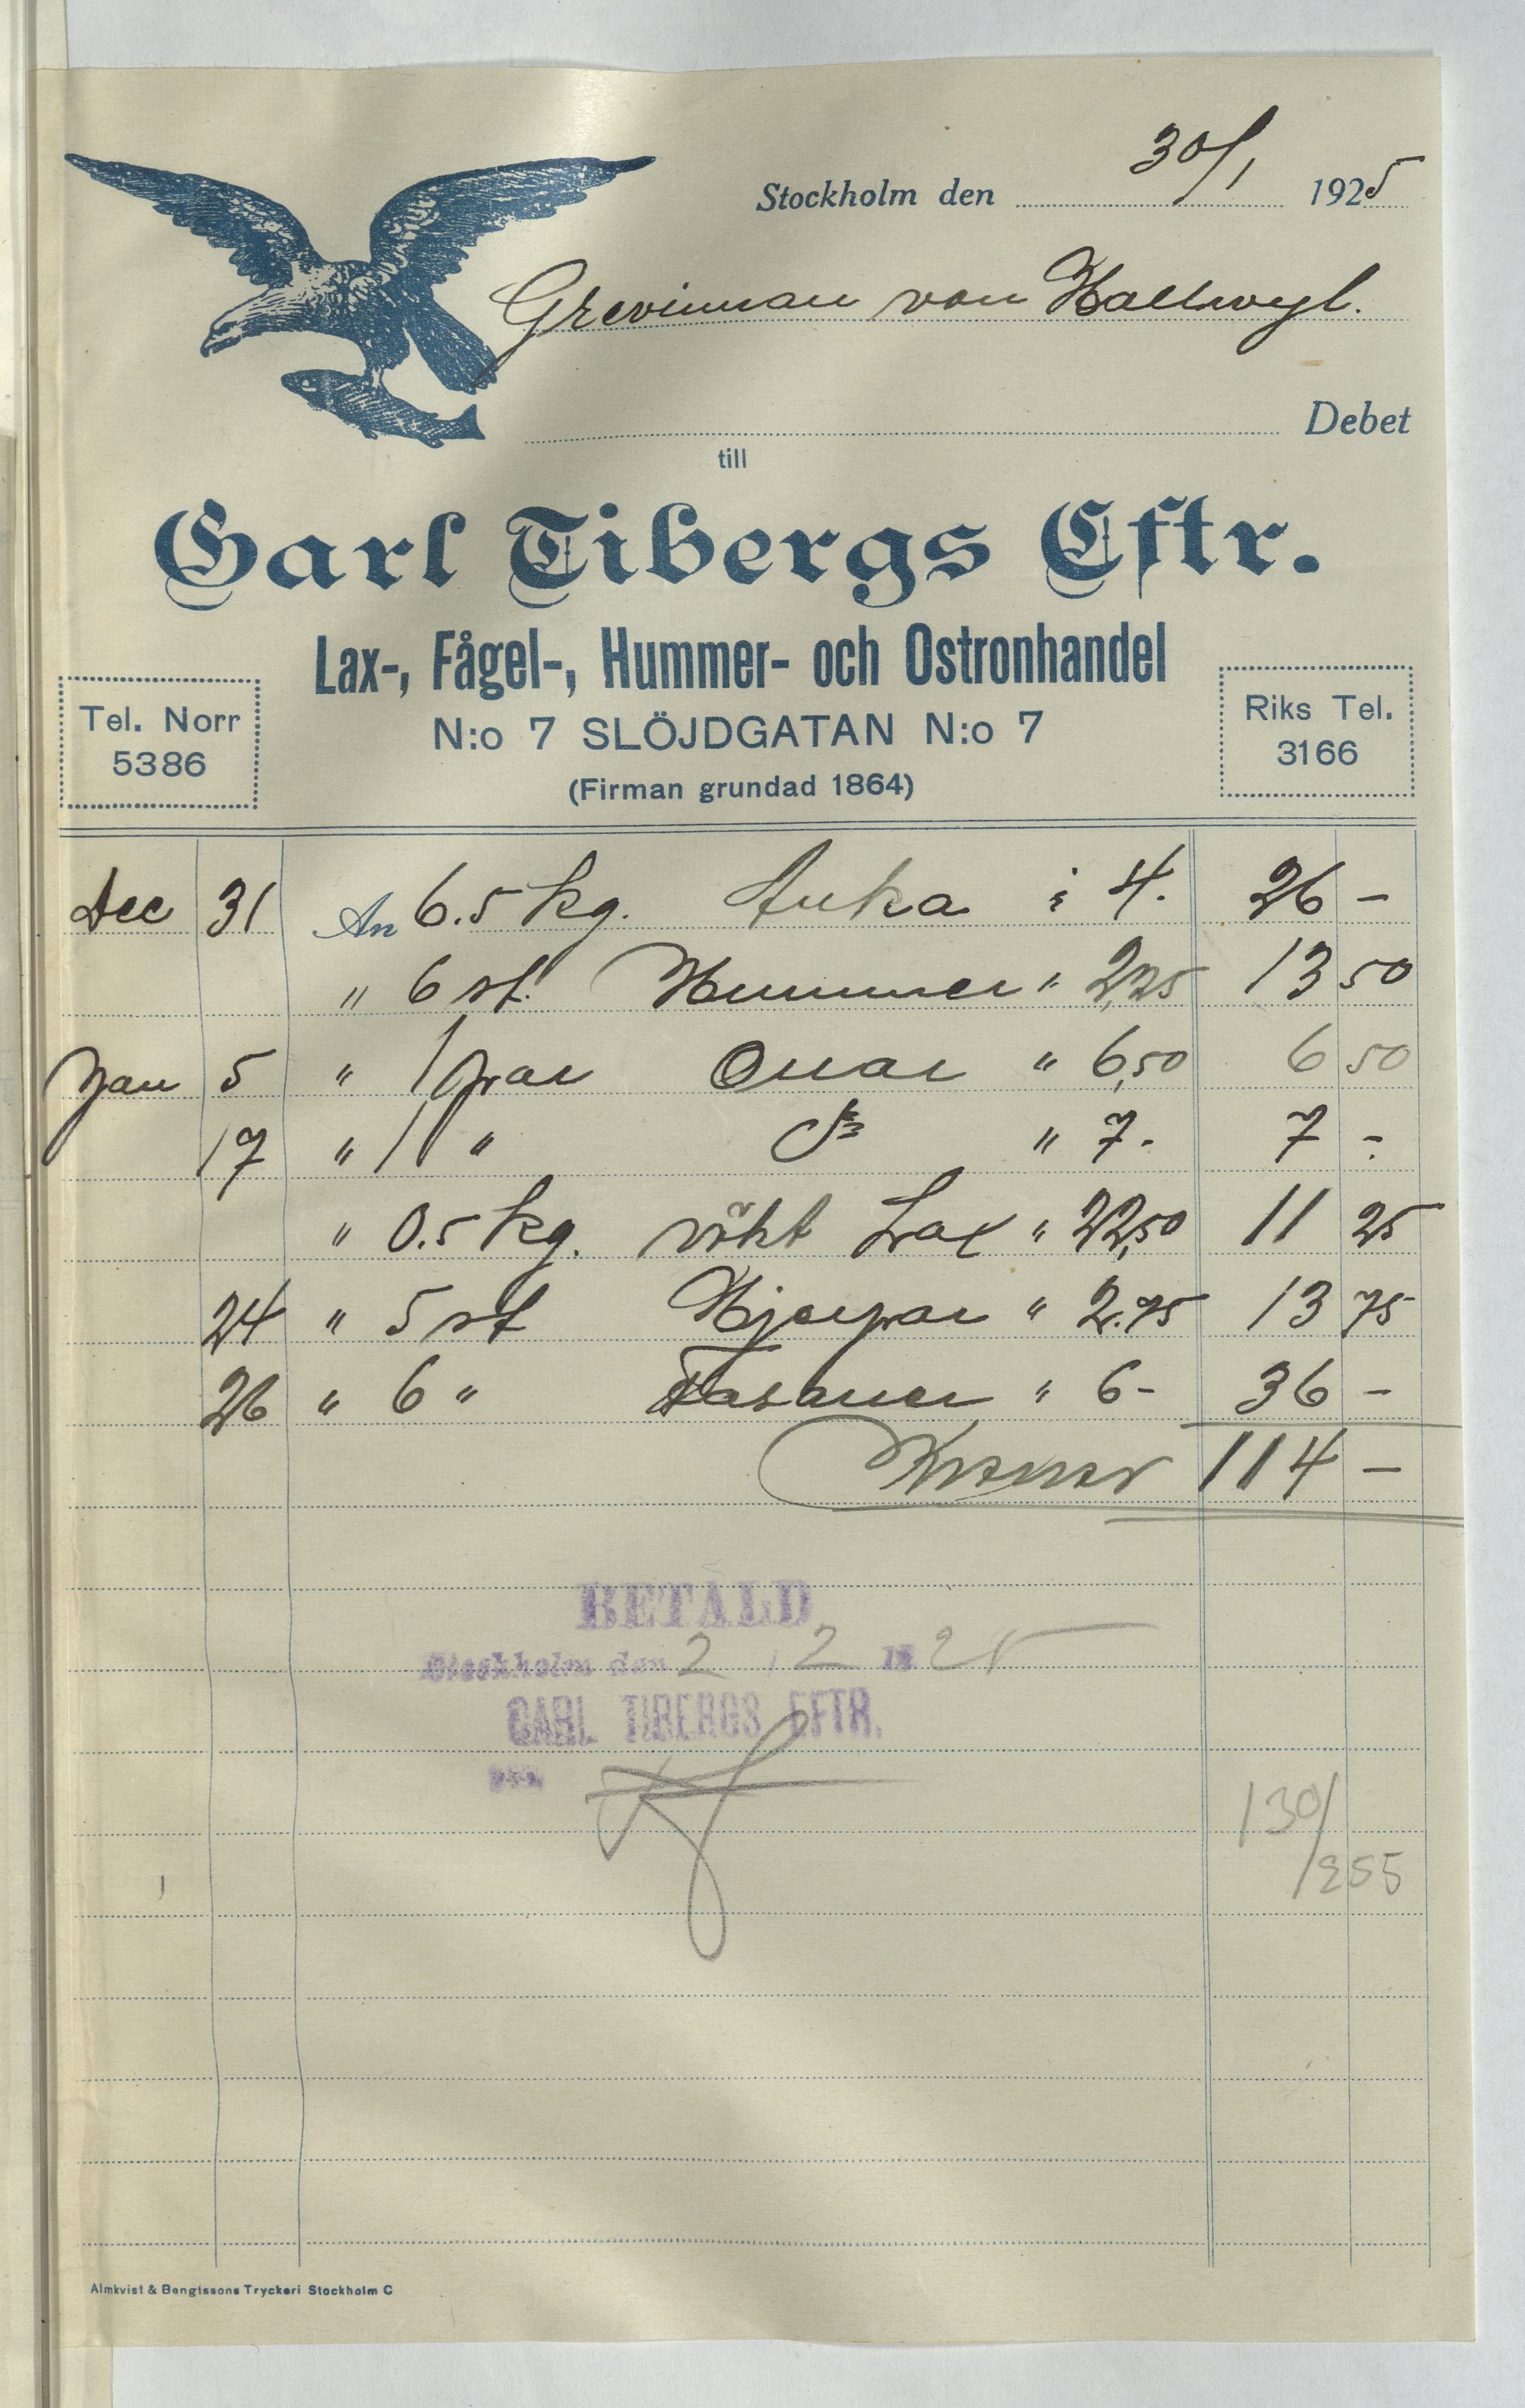 Stockholm den 30/1 1925
Grevinnan von Hallwyl.
Debet
till
Carl Tibergs Eftr.
Lax-, Fågel-, Hummer- och Ostronhandel
Tel. Norr 5386
N:o 7 SLÖJDGATAN N:o 7
Riks Tel. 3166
(Firman grundad 1864)
Dec 31 An 6.5 kg. Anka à 4. 26 -
" 6 st. Hummer " 2,25 13 50
Jan 5 " 1 par Orrar " 6,50 6 50
17 " 1 " " 7- 7 -
" 0.5 kg. rökt Lax " 22,50 11 25
24 " 5 st Hjerpar " 2.75 13 75
26 " 6 " Fasaner " 6- 36 -
Kronor 114 -
BETALD
Stockholm den 2/2 1925
CARL TIBERGS EFTR.
130/
/255
Almkvist & Bengtssons Tryckeri Stockholm C